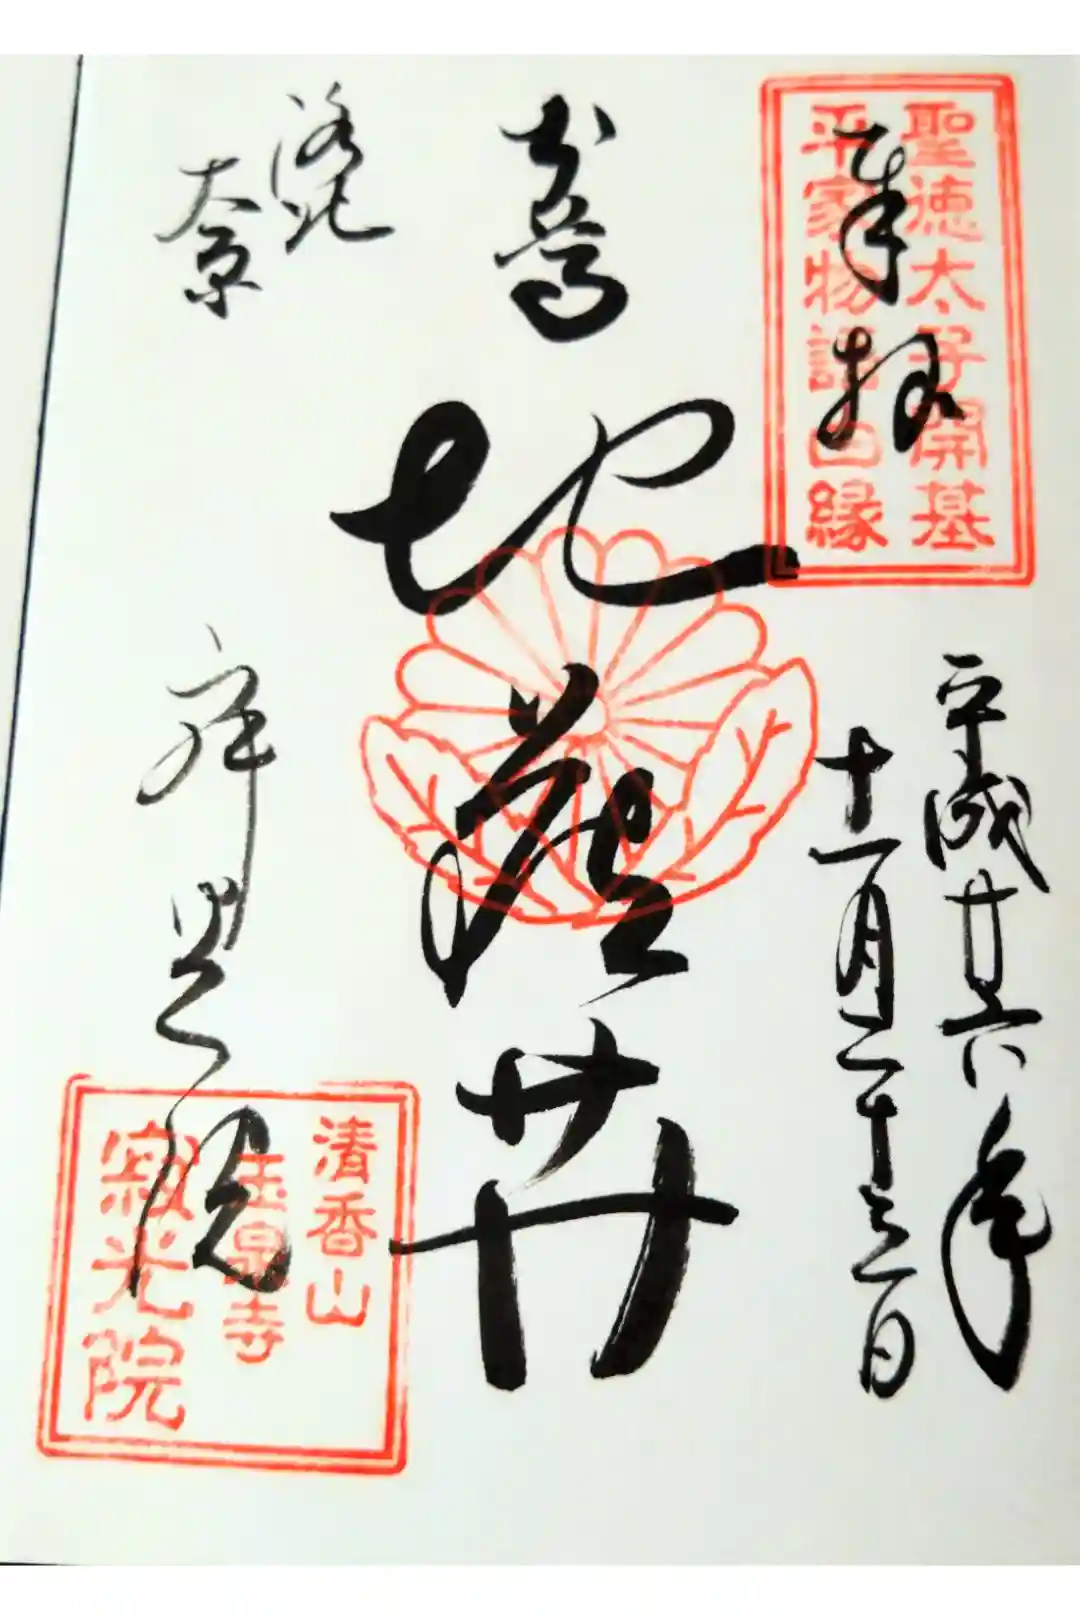 聖徳太子開基
平家物語因縁
奉拝
平成廿六年
十一月二十三日
本尊
地蔵𦬇
洛北
大原
寂光院
清香山
玉泉寺
寂光院